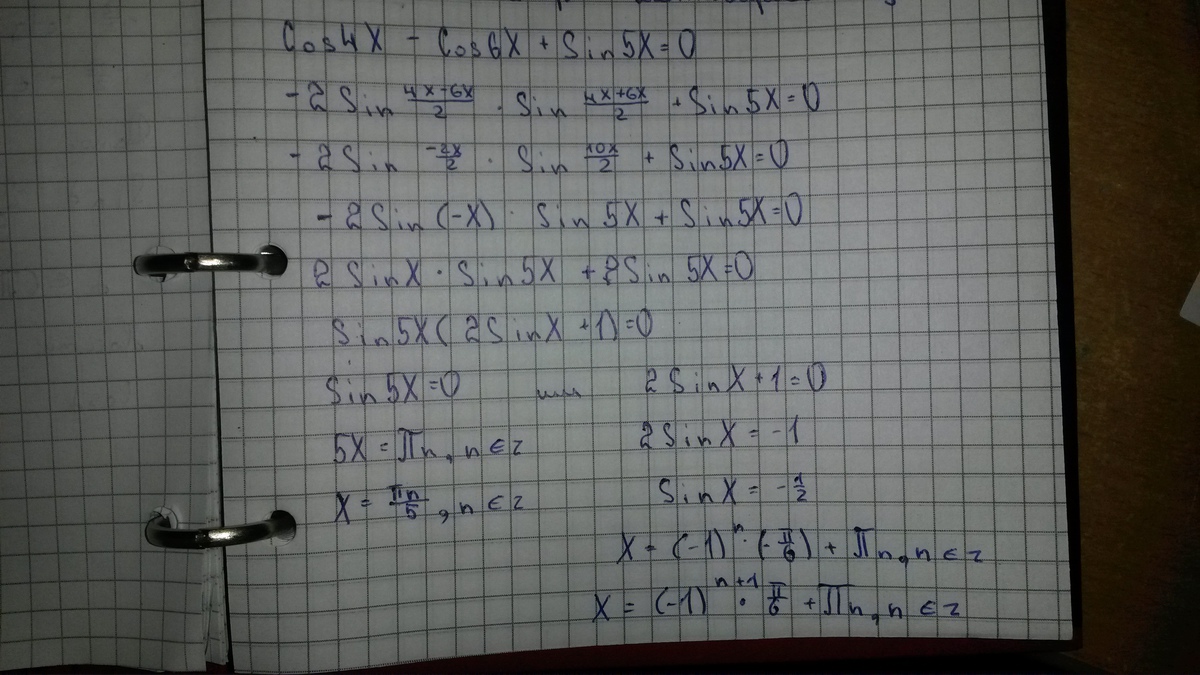 Cos4X - Cos6X + Sin5X=0
-2Sin (4X-6X)/2 · Sin (4X+6X)/2 + Sin5X=0
-2Sin (-2X)/2 · Sin 10X/2 + Sin5X=0
-2Sin(-X) · Sin5X + Sin5X=0
2SinX · Sin5X + Sin5X=0
Sin5X(2SinX+1)=0
Sin5X=0 или 2SinX+1=0
5X=Πn, n∈z 2SinX=-1
X=Πn/5, n∈z SinX=-1/2
X=(-1)^n · (-Π/6) + Πn, n∈z
X=(-1)^(n+1) · Π/6 + Πn, n∈z